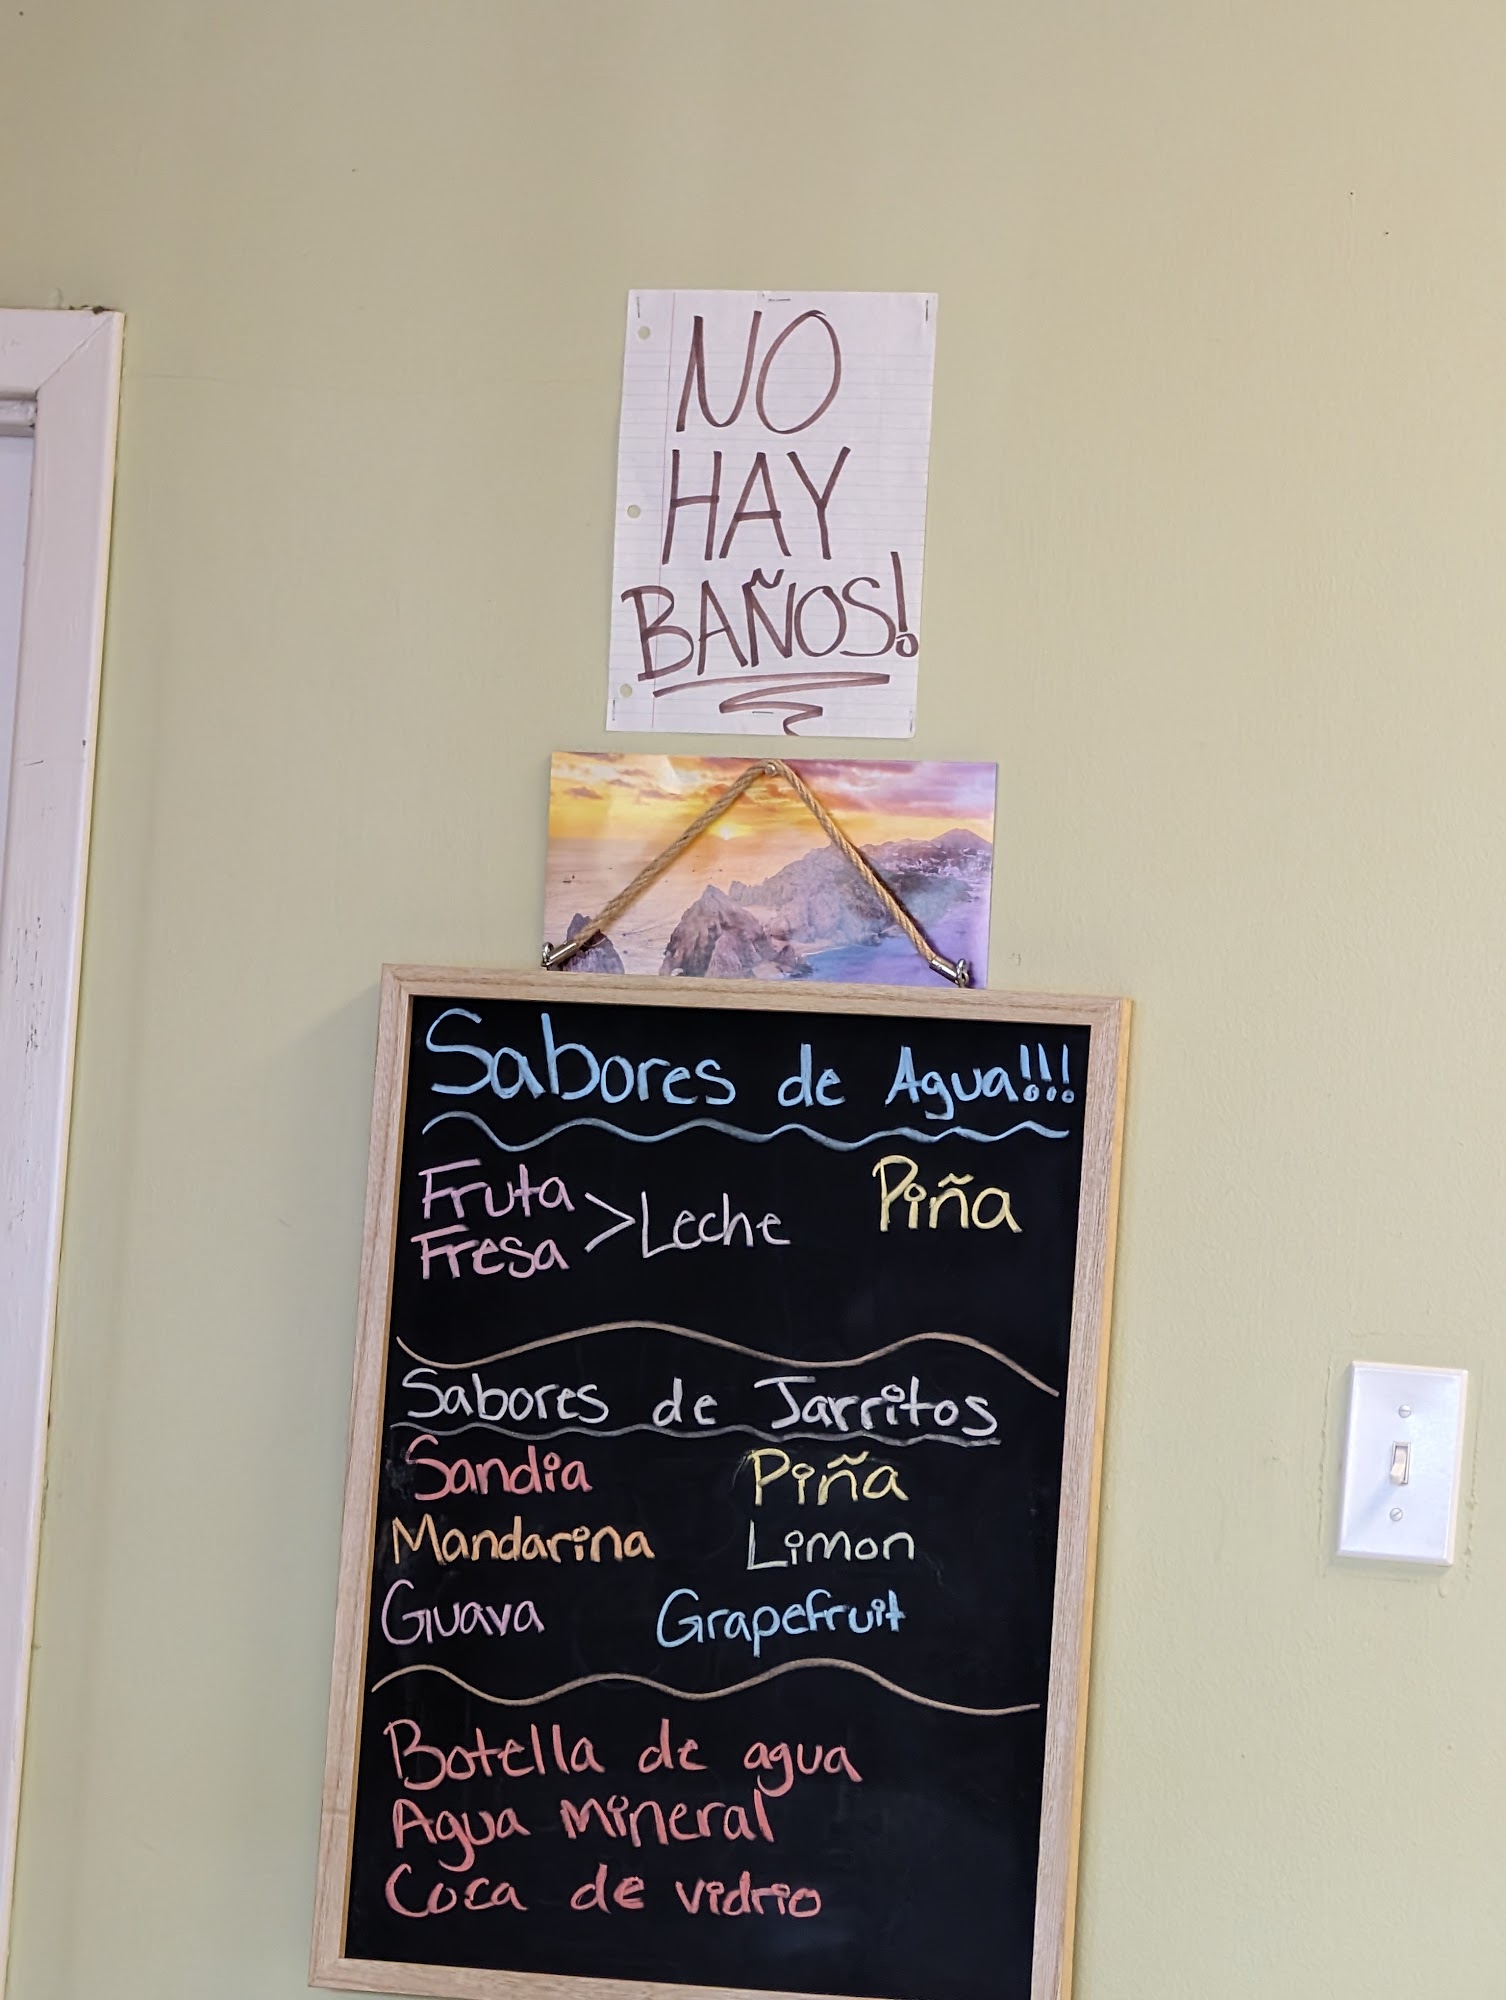 NO
HAY
BAÑOS!
Sabores de Agua!!!
Fruta
Fresa > Leche
Piña
Sabores de Jarritos
Sandia Piña
Mandarina Limon
Guava Grapefruit
Botella de agua
Agua Mineral
Coca de vidrio